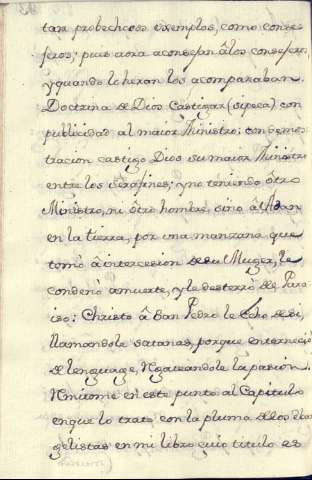 tan probechosos exemplos, como conse-
jeros; pues aora aconsejan â los consejeros
y quando lo heran los acompañaban.
Doctrina de Dios Castigar (si peca) con
publicidad al maior Ministro: con demos-
tracion castigo Dios su maior Ministro
entre los serafines; y no teniendo ôtro
Ministro, ni ôtro hombre, sino â Adan
en la tierra, por una manzana que
tomò â intercesion de su Muger, le
condenò a muerte, y le desterrò de Para-
iso: Christo â San Pedro le echo de si,
llamandole satanas, porque enterneciò
el lenguage, Negateandole la pasion.
Remitome en este punto al Capitulo
en que lo trato con la pluma de los eban-
gelistas en mi libro cuio titulo es